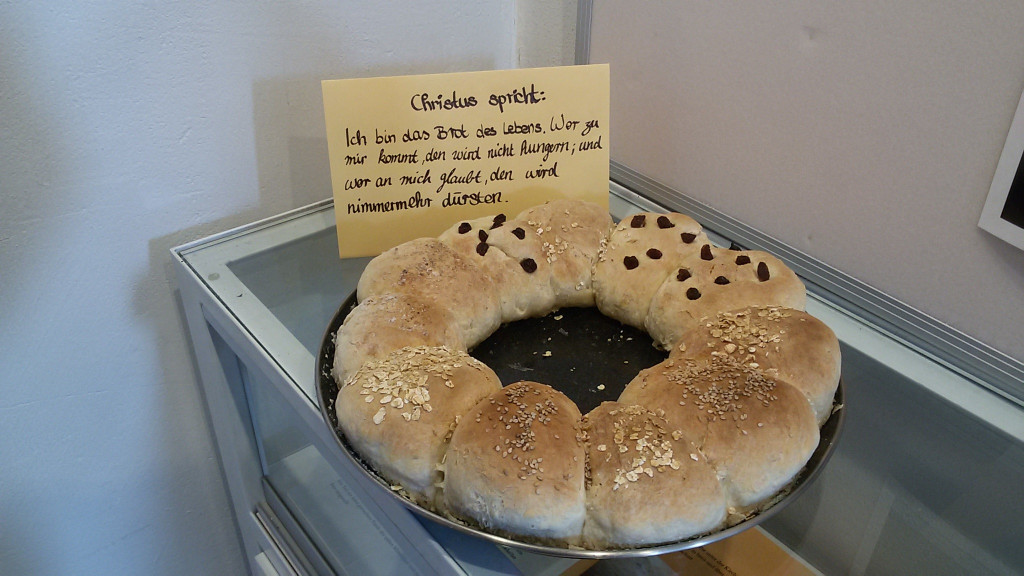 Christus spricht:
Ich bin das Brot des Lebens. Wer zu
mir kommt, den wird nicht hungern; und
wer an mich glaubt, den wird
nimmermehr dürsten.